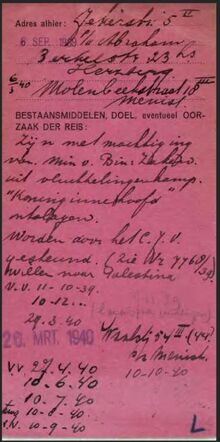 Adres alhier: Zekerstr. 5 II
6 SEP. 1939 c/o Abraham
Zerkelstr 23 hs
6/3 40
Molenbeekstraat 8 III
Menist
BESTAANSMIDDELEN, DOEL, eventueel OOR-
ZAAK DER REIS:
Zijn met machtiging
van Min. v. Bin. Zaken
uit vluchtelingenkamp
"Koninginnehoofd"
ontslagen.
Worden door het C.J.V.
gesteund. (zie Wz 77681/39.
Willen naar Palestina
V.V. 11-10-39.
10-12..
29.3-40
26 MRT. 1940
54 III
c/o Menist
10-10-40
VV 27.4.40
10-6-40
10.7.40
10-8-40
10-9-40
L